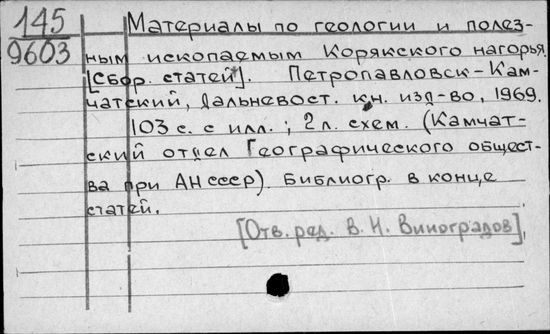 145
9603
Материалы по геологии и полез-
ным ископаемым Корякского нагорья.
[Сбор. статей]. Петропавловск-Кам-
чатский, Дальневост. кн. изд-во, 1969.
103 с. с илл.; 2 л. схем. (Камчат-
ский отдел Географического общест-
ва при АН СССР). Библиогр. в конце
статей.
[Отв. ред. В. И. Виноградов].